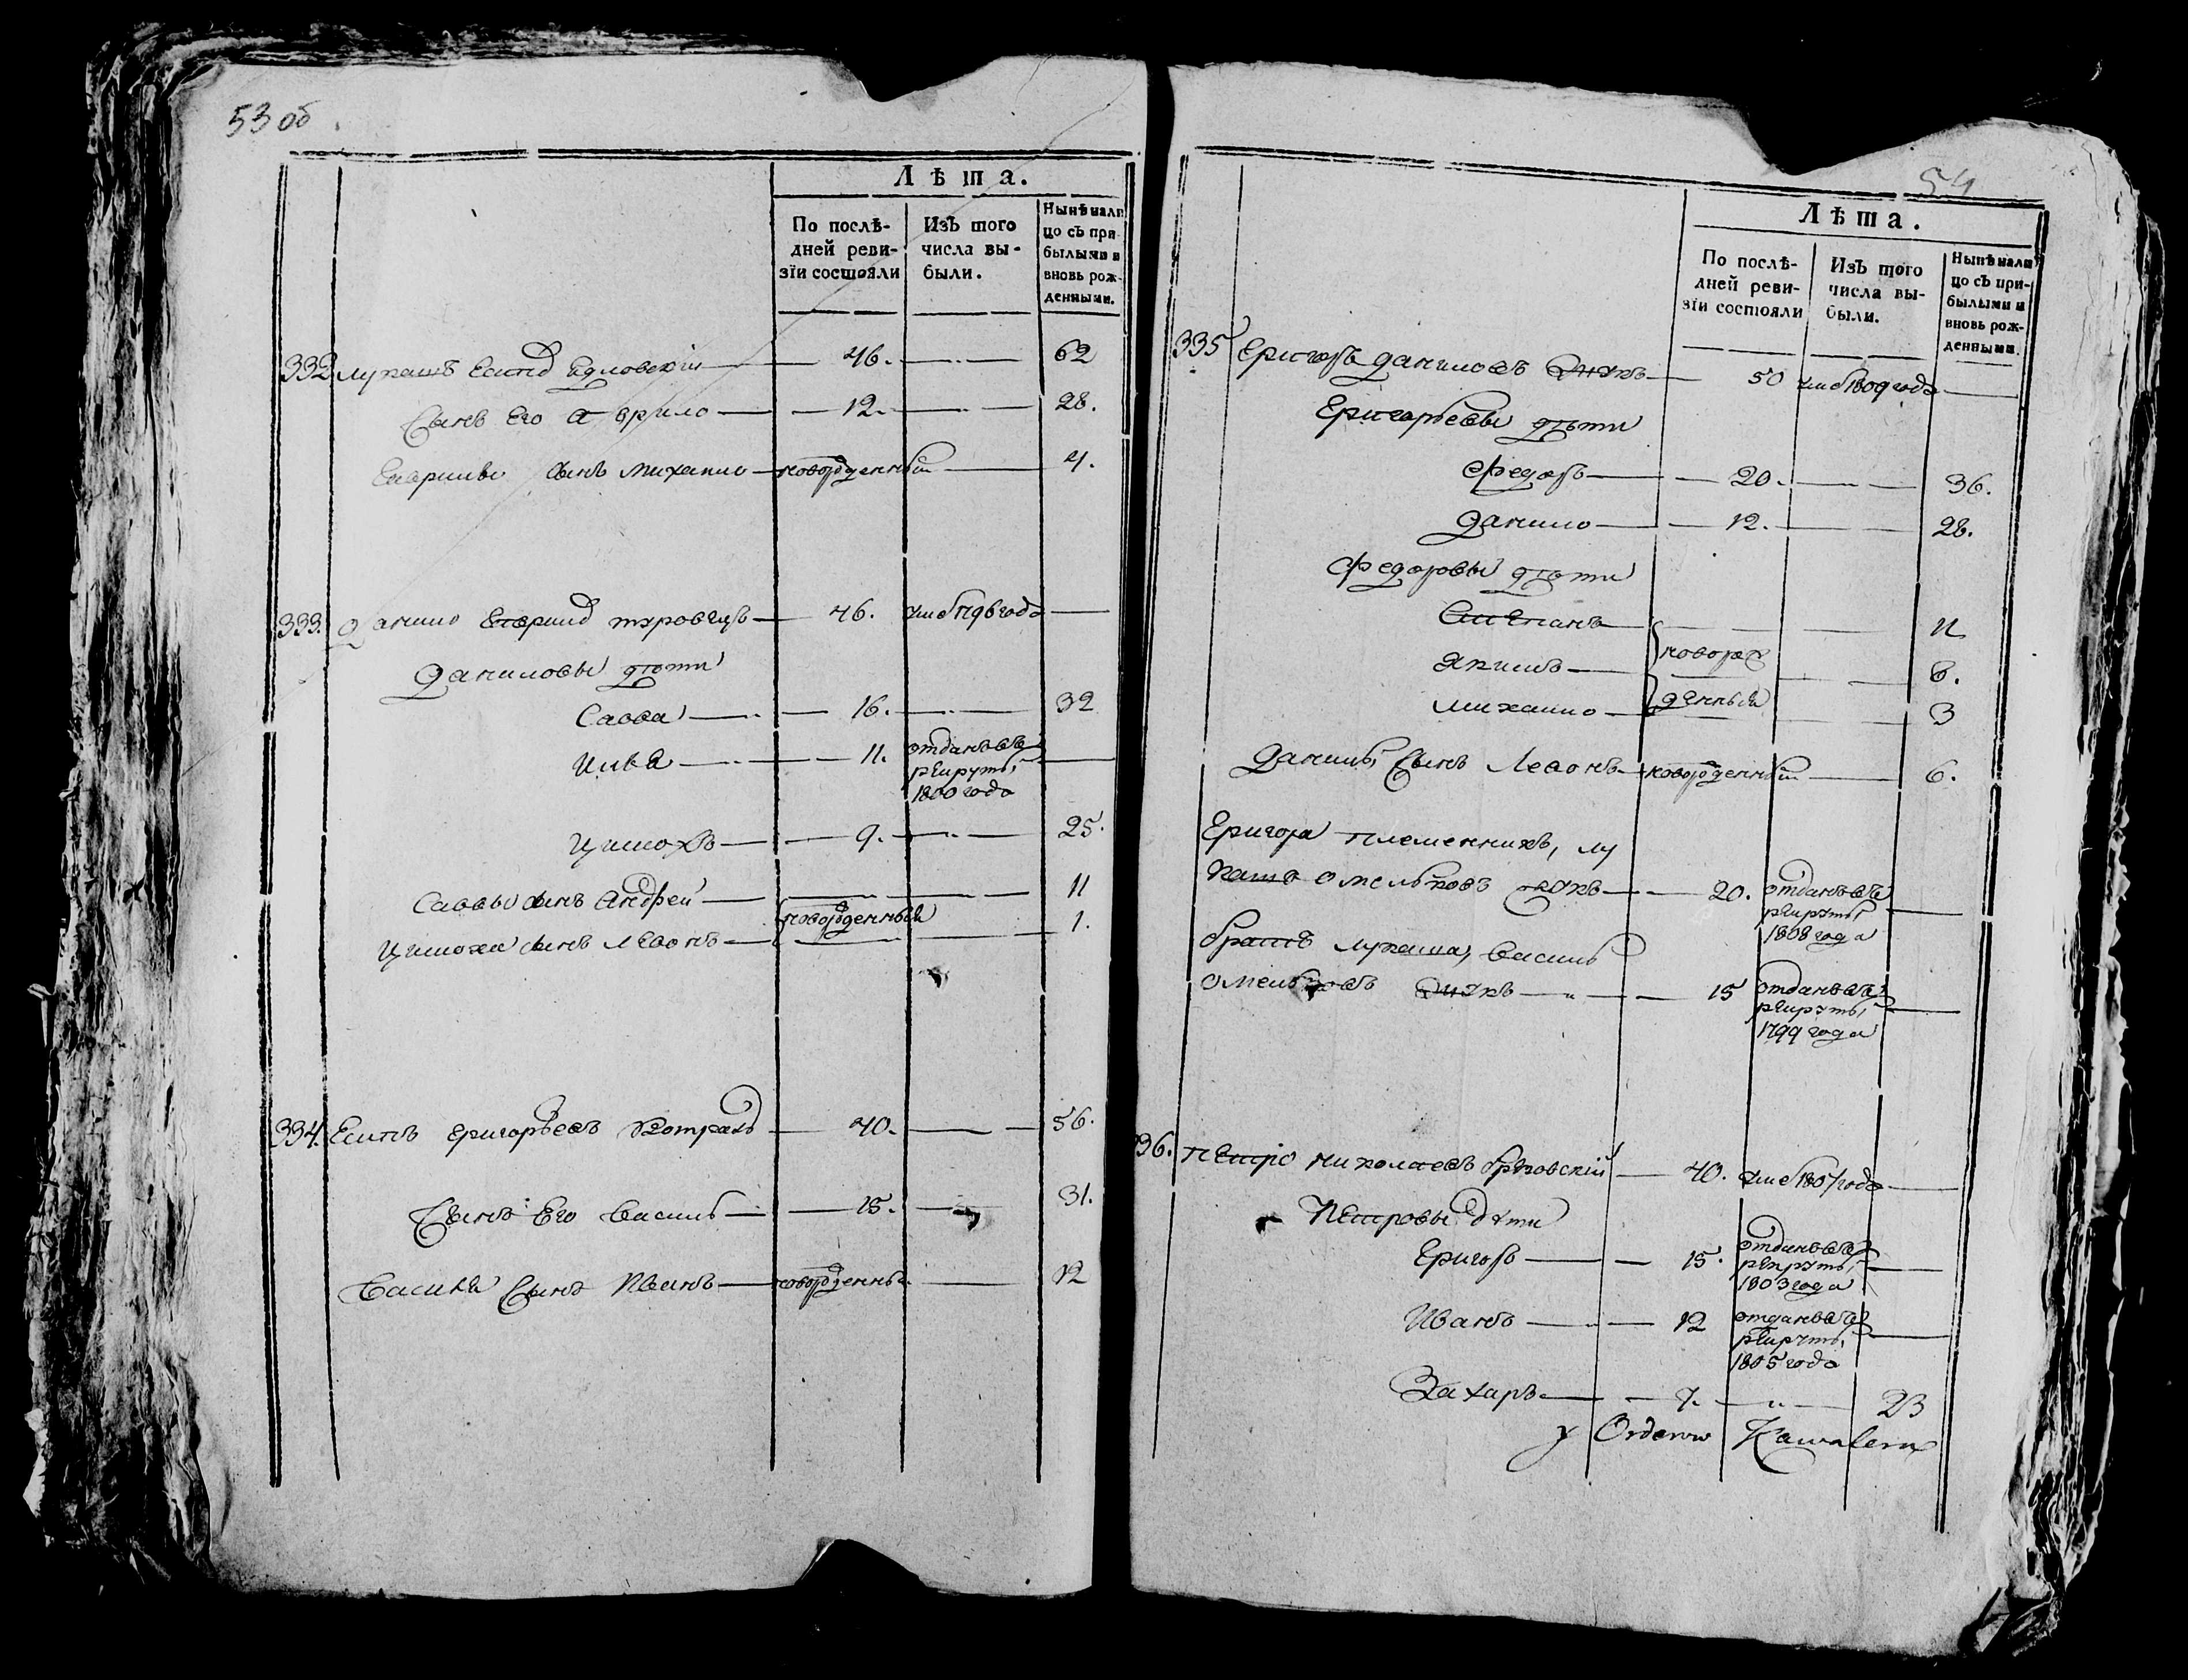 53 об
Лѣта.
По послѣ-
дней реви-
зїи состояли
Изъ того
числа вы-
были.
Нынѣ нали
цо съ при-
былыми и
вновь рож-
денными.
332 Лукашъ Есипов 46. 62
Сынъ Его Гаврило 12. 28.
Гаврилы сынъ Михаило новорожденный 4.
333. Данило 46. умеръ 1796 года
Даниловы дѣти
Савва 16. 32
Илья 11. отданъ въ
рекруты
1800 года
Цимохъ 9. 25.
Саввы сынъ Андрей 11
новорожденныя
Цимоха сынъ Левонъ 1.
334. Есипъ Григорьевъ 40. 56.
Сынъ Его Василь 15. 31.
Василя Сынъ Иванъ новорожденный 12
54
Лѣта.
По послѣ-
дней реви-
зїи состояли
Изъ того
числа вы-
были.
Нынѣ нали
цо съ при-
былыми и
вновь рож-
денными.
335 Григоръ Даниловъ 50 умеръ 1809 года
Григорьевы дѣти
Федоръ 20. 36.
Данило 12. 28.
Федоровы дѣти
Степанъ 11
новорож
Якимъ 6.
денныя
Михаило 3
Данилы Сынъ Левонъ новорожденный 6.
Григора племенникъ, Лу
кашъ Омельяновъ 20. отданъ въ
рекруты
1808 года
братъ Лукаша, Василь
Омельяновъ 15 отданъ въ
рекруты
1799 года
336. Петръ Николаевъ 40. умеръ 1807 года
Петровы дѣти
Григоръ 15. отданъ въ
рекруты
1803 года
Иванъ 12 отданъ въ
рекруты
1805 года
Захаръ 7. 23
y Orderow Kawalera